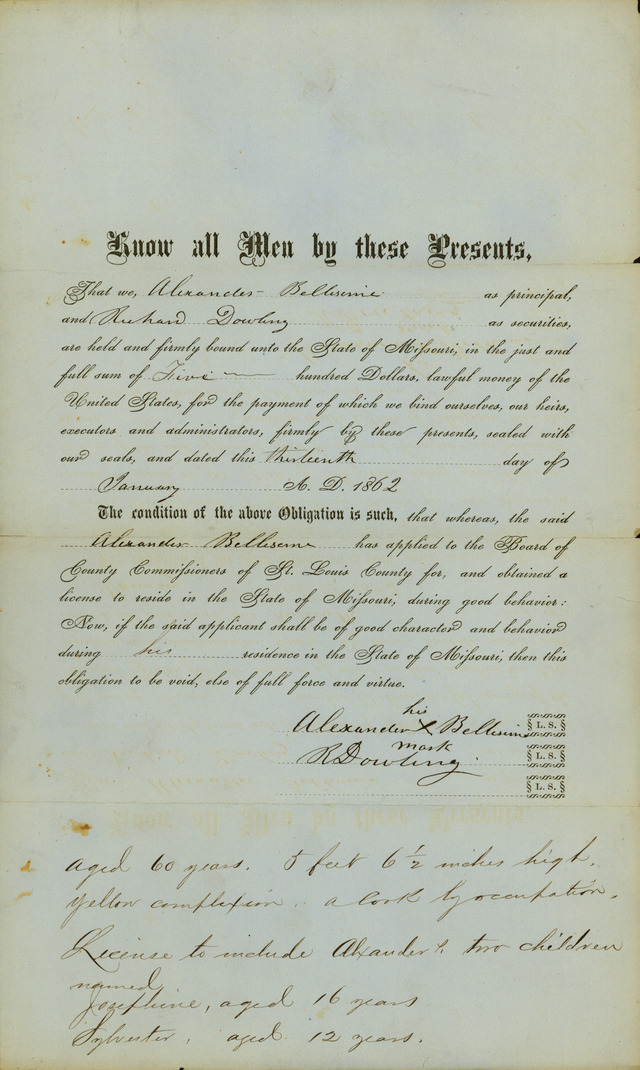 Know all Men by these Presents,
That we, Alexander Bellisime as principal,
and Richard Dowling as securities,
are held and firmly bound unto the State of Missouri, in the just and
full sum of Five hundred Dollars, lawful money of the
United States, for the payment of which we bind ourselves, our heirs,
executors and administrators, firmly by these presents, sealed with
our seals, and dated this thirteenth day of
January A. D. 1862
The condition of the above Obligation is such, that whereas, the said
Alexander Bellisime has applied to the Board of
County Commissioners of St. Louis County for, and obtained a
license to reside in the State of Missouri, during good behavior:
Now, if the said applicant shall be of good character and behavior
during his residence in the State of Missouri, then this
obligation to be void, else of full force and virtue.
his
Alexander X Bellisime L. S.
mark
R Dowling L. S.
L. S.
aged 60 years. 5 feet 6 1/2 inches high.
yellow complexion. a cook by occupation.
License to include Alxander & two children
named
Josephine, aged 16 years
Sylvester, aged 12 years.